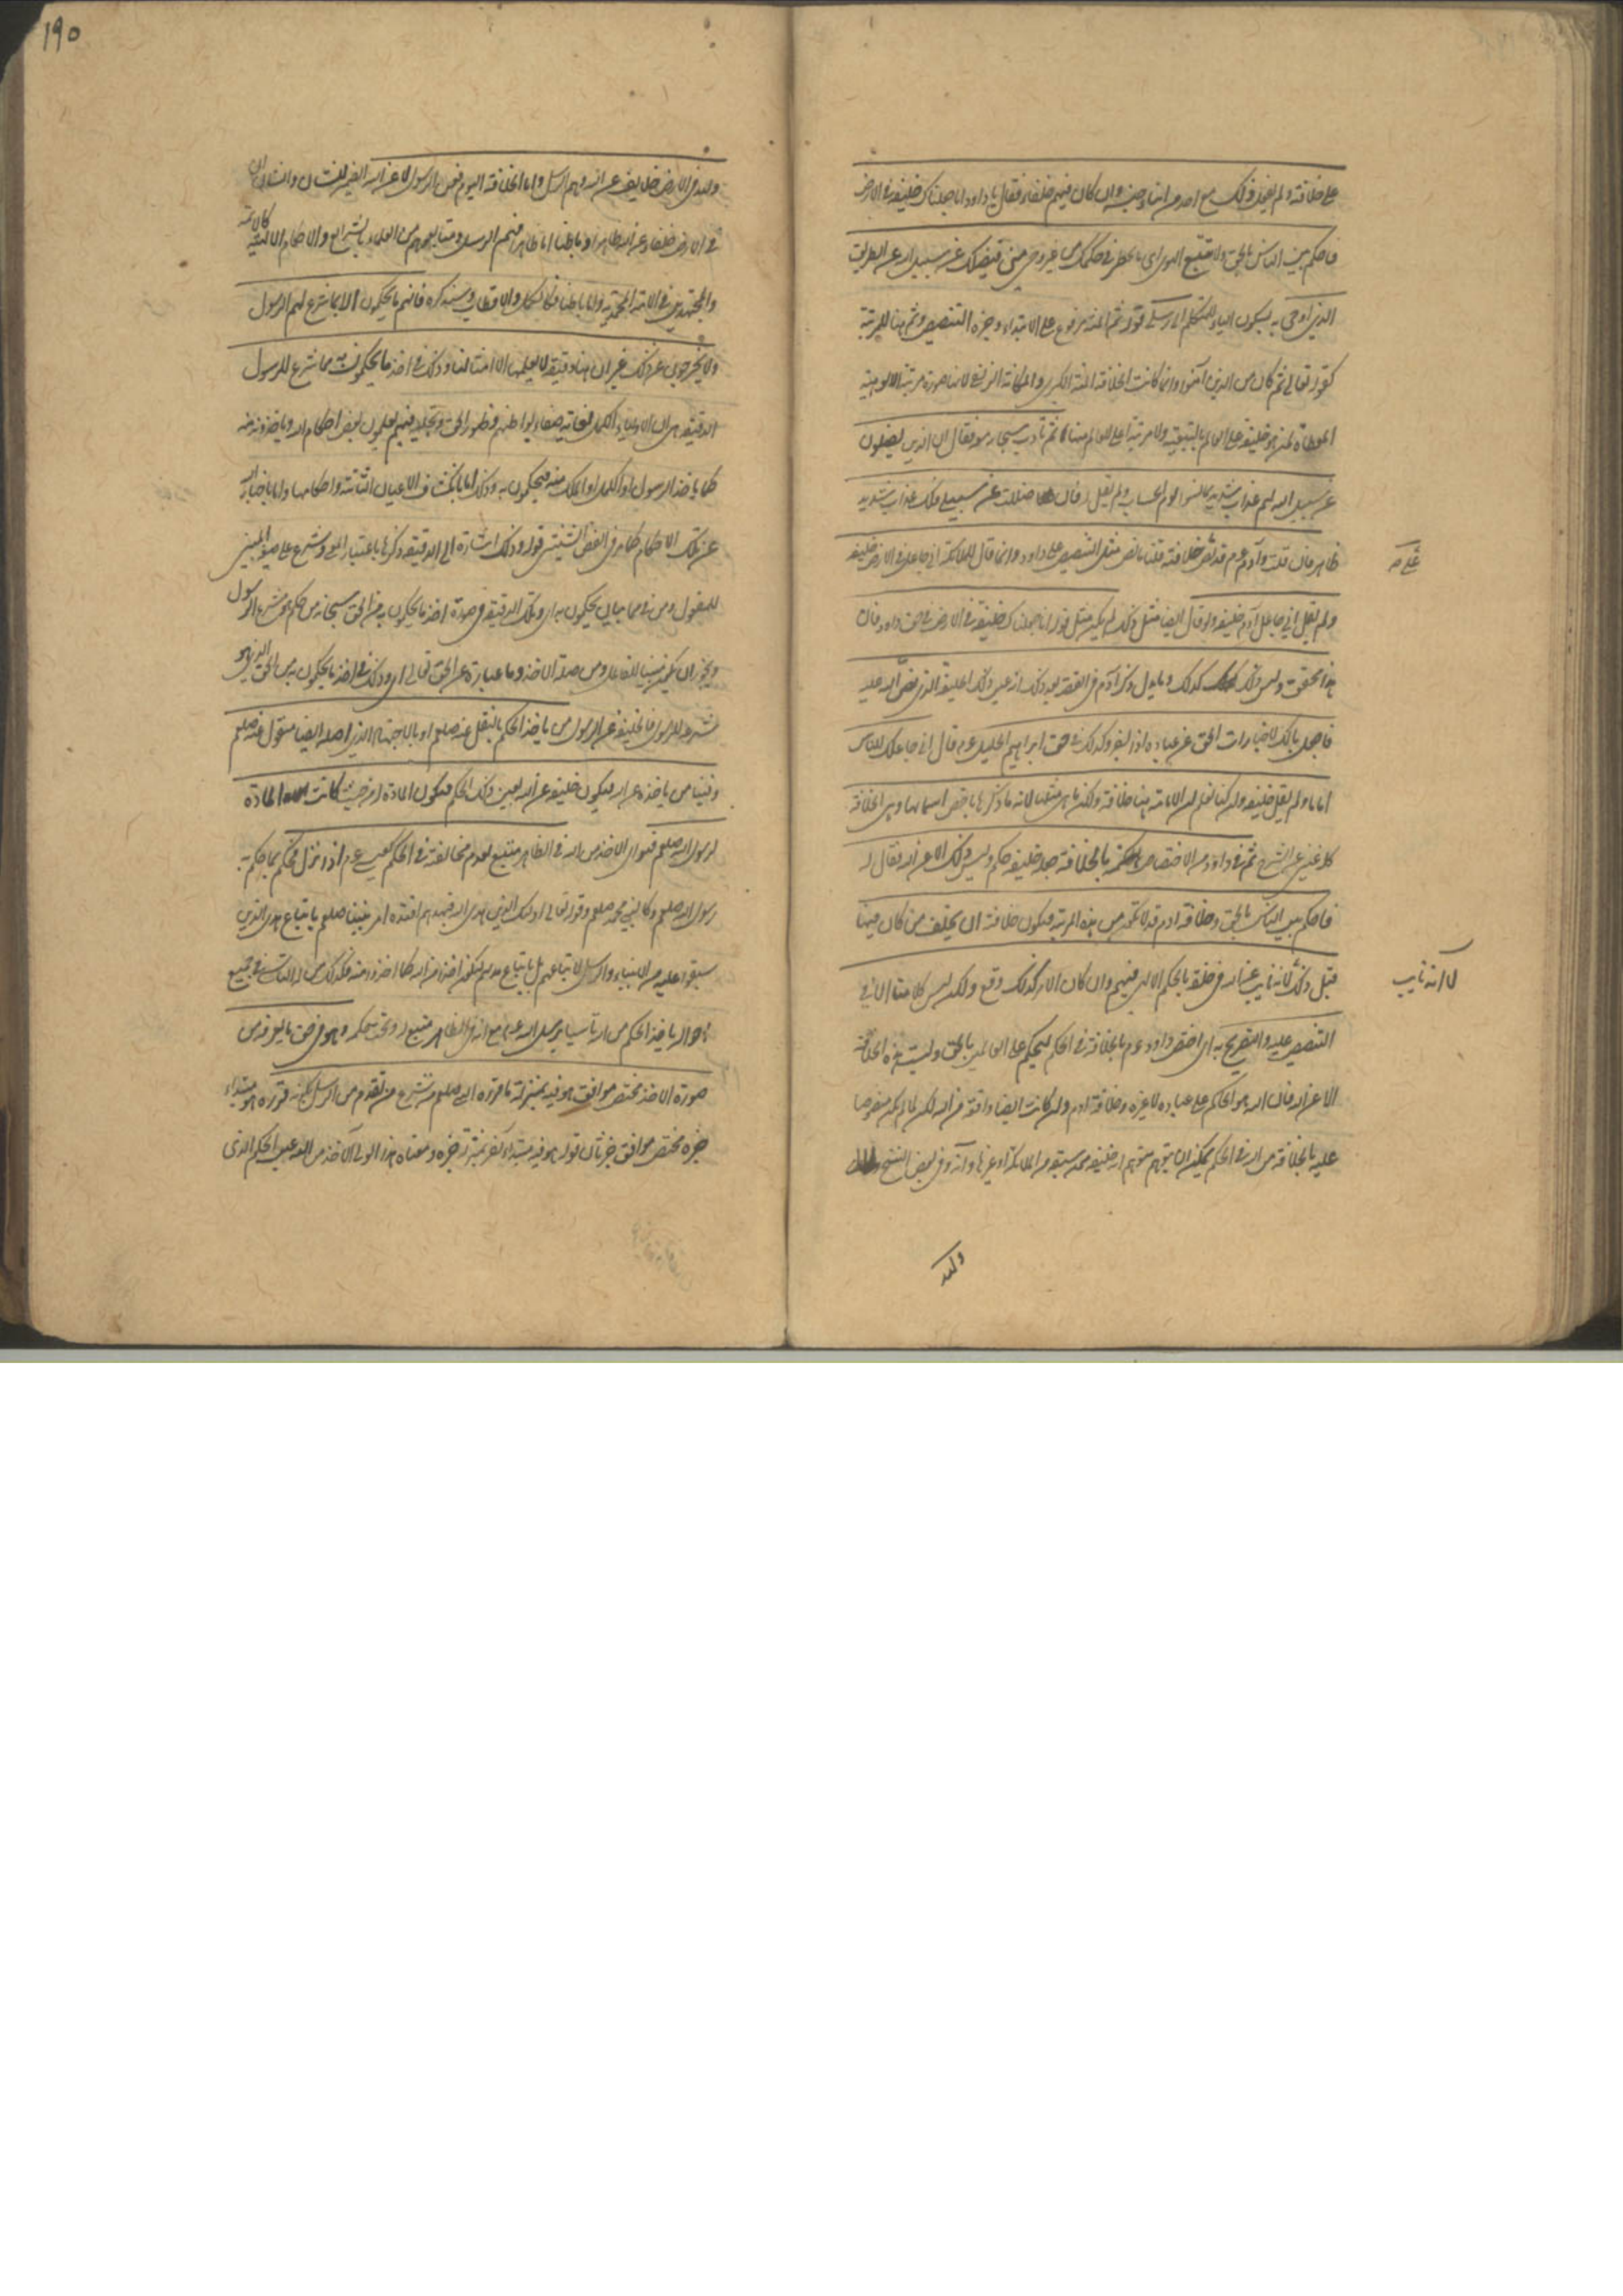 على خلافته ولم يفعل ذلك مع احد من ابناء جنسه وان كان فيهم خلفاء فقال يا داود انا جعلناك خليفة في الارض
فاحكم بين الناس بالحق ولا تتبع الهوى اى ما يخطر في حكمك من غير وحى منى فيضلك عن سبيل الله عن الطريق
الذى اوحى به بسكون الياء للمتكلم الى رسلى قوله ثم المنة مرفوع على الابتداء وخبره التنصيص وثم هنا للمرتبة
كقوله تعالى ثم كان من الذين آمنوا وانما كانت الخلافة المنة الكبرى والمكانة الزلفى لانها صورة مرتبة الالوهية
المعطاة لمن هو خليفة على العالم بالتبعية ولا مرتبة اعلى للعالم منها ثم تأدب سبحانه معه فقال ان الذين يضلون
عن سبيل الله لهم عذاب شديد بما نسوا يوم الحساب ولم يقل له فان ضللت عن سبيلى فلك عذاب شديد
ظاهر فان قلت وآدم عم قد نص على خلافته قلنا ما نص مثل التنصيص على داود وانما قال للملائكة انى جاعل في الارض خليفة
ولم يقل انى جاعل آدم خليفة ولو قال ايضا مثل ذلك لم يكن مثل قوله انا جعلناك خليفة في الارض في حق داود فان
هذا محقق وليس ذلك كذلك وما يدل ذكر آدم في القصة بعد ذلك انه عين ذلك الخليفة الذى نص الله عليه
فاجعل بالك لاخبارات الحق عن عباده اذا اخبر وكذلك في حق ابراهيم الخليل عم قال انى جاعلك للناس
اماما ولم يقل خليفة وان كنا نعلم ان الامامة هنا خلافة ولكن ما هى مثلها لانه ما ذكرها باخص اسمائها وهى الخلافة
كله غنى عن الشرح ثم في داود من الاختصاص بالخلافة جعله خليفة حكم وليس ذلك الا عن الله فقال له
فاحكم بين الناس بالحق وخلافة ادم قد لا تكون من هذه المرتبة فيكون خلافته ان يخلف من كان فيها
قبل ذلك لا انه نايب عن الله في خلقه بالحكم الالهى فيهم وان كان الامر كذلك وقع ولكن ليس كلامنا الا في
التنصيص عليه والتصريح به اى اختص داود عم بالخلافة في الحكم ليحكم على العالمين بالحق وليست هذه الخلافة
الا عن الله فان الله هو الحاكم على عباده لا غيره وخلافة ادم وان كانت ايضا واقعة من الله لكن لما لم يكن منصوصا
عليه بالخلافة من الله في الحكم يمكن ان يتوهم متوهم انه خليفة عمن سبقه من الملائكة او غيرها وانه وفي بعض النسخ
ولله
ولله في الارض خلايف عن الله وهم الرسل واما الخلافة اليوم فعن الرسول لا عن الله الضمير للشان والشان ان
في الارض خلفاء عن الله ظاهرا وباطنا اما ظاهرا فهم الرسل ومتابعوهم من العلماء بالشرايع والاحكام الالهية كالائمة
والمجتهدين في الامة المحمدية واما باطنا فكالكمل والاقطاب وسنذكره فانهم ما يحكمون الا بما شرع لهم الرسول
ولا يخرجون عن ذلك غير ان هنا دقيقة لا يعلمها الا امثالنا وذلك في اخذ ما يحكمون به مما شرع للرسول
الدقيقة هى ان الاولياء الكمل لغاية صفاء بواطنهم وظهور الحق وتجليه فيهم يعلمون بعض احكام الله وياخذونه منه
كما ياخذ الرسول او الملك منه فيحكمون به وذلك اما بانكشاف الاعيان الثابتة واحكامها واما باخبار الله
عن تلك الاحكام كما مر في الفص الشيثى قوله وذلك اشارة الى الدقيقة ذكرها باعتبار المعنى وشرع على صيغة المبنى
للمفعول ومن في مما بيان ما يحكمون به اى وتلك الدقيقة في صورة اخذ ما يحكمون به من الحق سبحانه من حكم هو شرع الرسول
ويجوز ان يكون مبنيا للفاعل ومن صلة الاخذ وما عبارة عن الحق تعالى اى وذلك في اخذ ما يحكمون به من الحق الذى هو
شرعه للرسول فالخليفة عن الرسول من ياخذ الحكم بالنقل عنه صلعم او بالاجتهاد الذى اصله ايضا منقول عنه صلعم
وفينا من ياخذه عن الله فيكون خليفة عن الله بعين ذلك الحكم فيكون المادة له من حيث كانت المادة
لرسول الله صلعم فهو اى الاخذ من الله في الظاهر متبع لعدم مخالفته في الحكم كعيسى عم اذا نزل فحكم بما حكم به
رسول الله صلعم وكالنبى محمد صلعم وقوله تعالى اولئك الذين هدى الله فبهداهم اقتده امر نبينا صلعم باتباع هدى الذين
سبقوا عليه من الانبياء والرسل لا اتباعهم بل باتباع هديهم ليكون اخذا من الله كما اخذوا منه فكذلك من له التأسى في جميع
احواله ياخذ الحكم من الله تأسيا برسل الله عليهم مع انه في الظاهر متبع له وتحت حكمه وهو في حق ما يعرفه من
صورة الاخذ مختص موافق هو فيه بمنزلة ما قرره النبى صلعم من شرع من تقدم من الرسل بكونه قرره هو مبتداء
خبره مختص موافق خبر ثان قوله هو فيه مبتداء اخر بمنزلة خبره ومعناه هذا الولى الاخذ من الله عين الحكم الذى
على صح
لا انه نايب
١٩٥